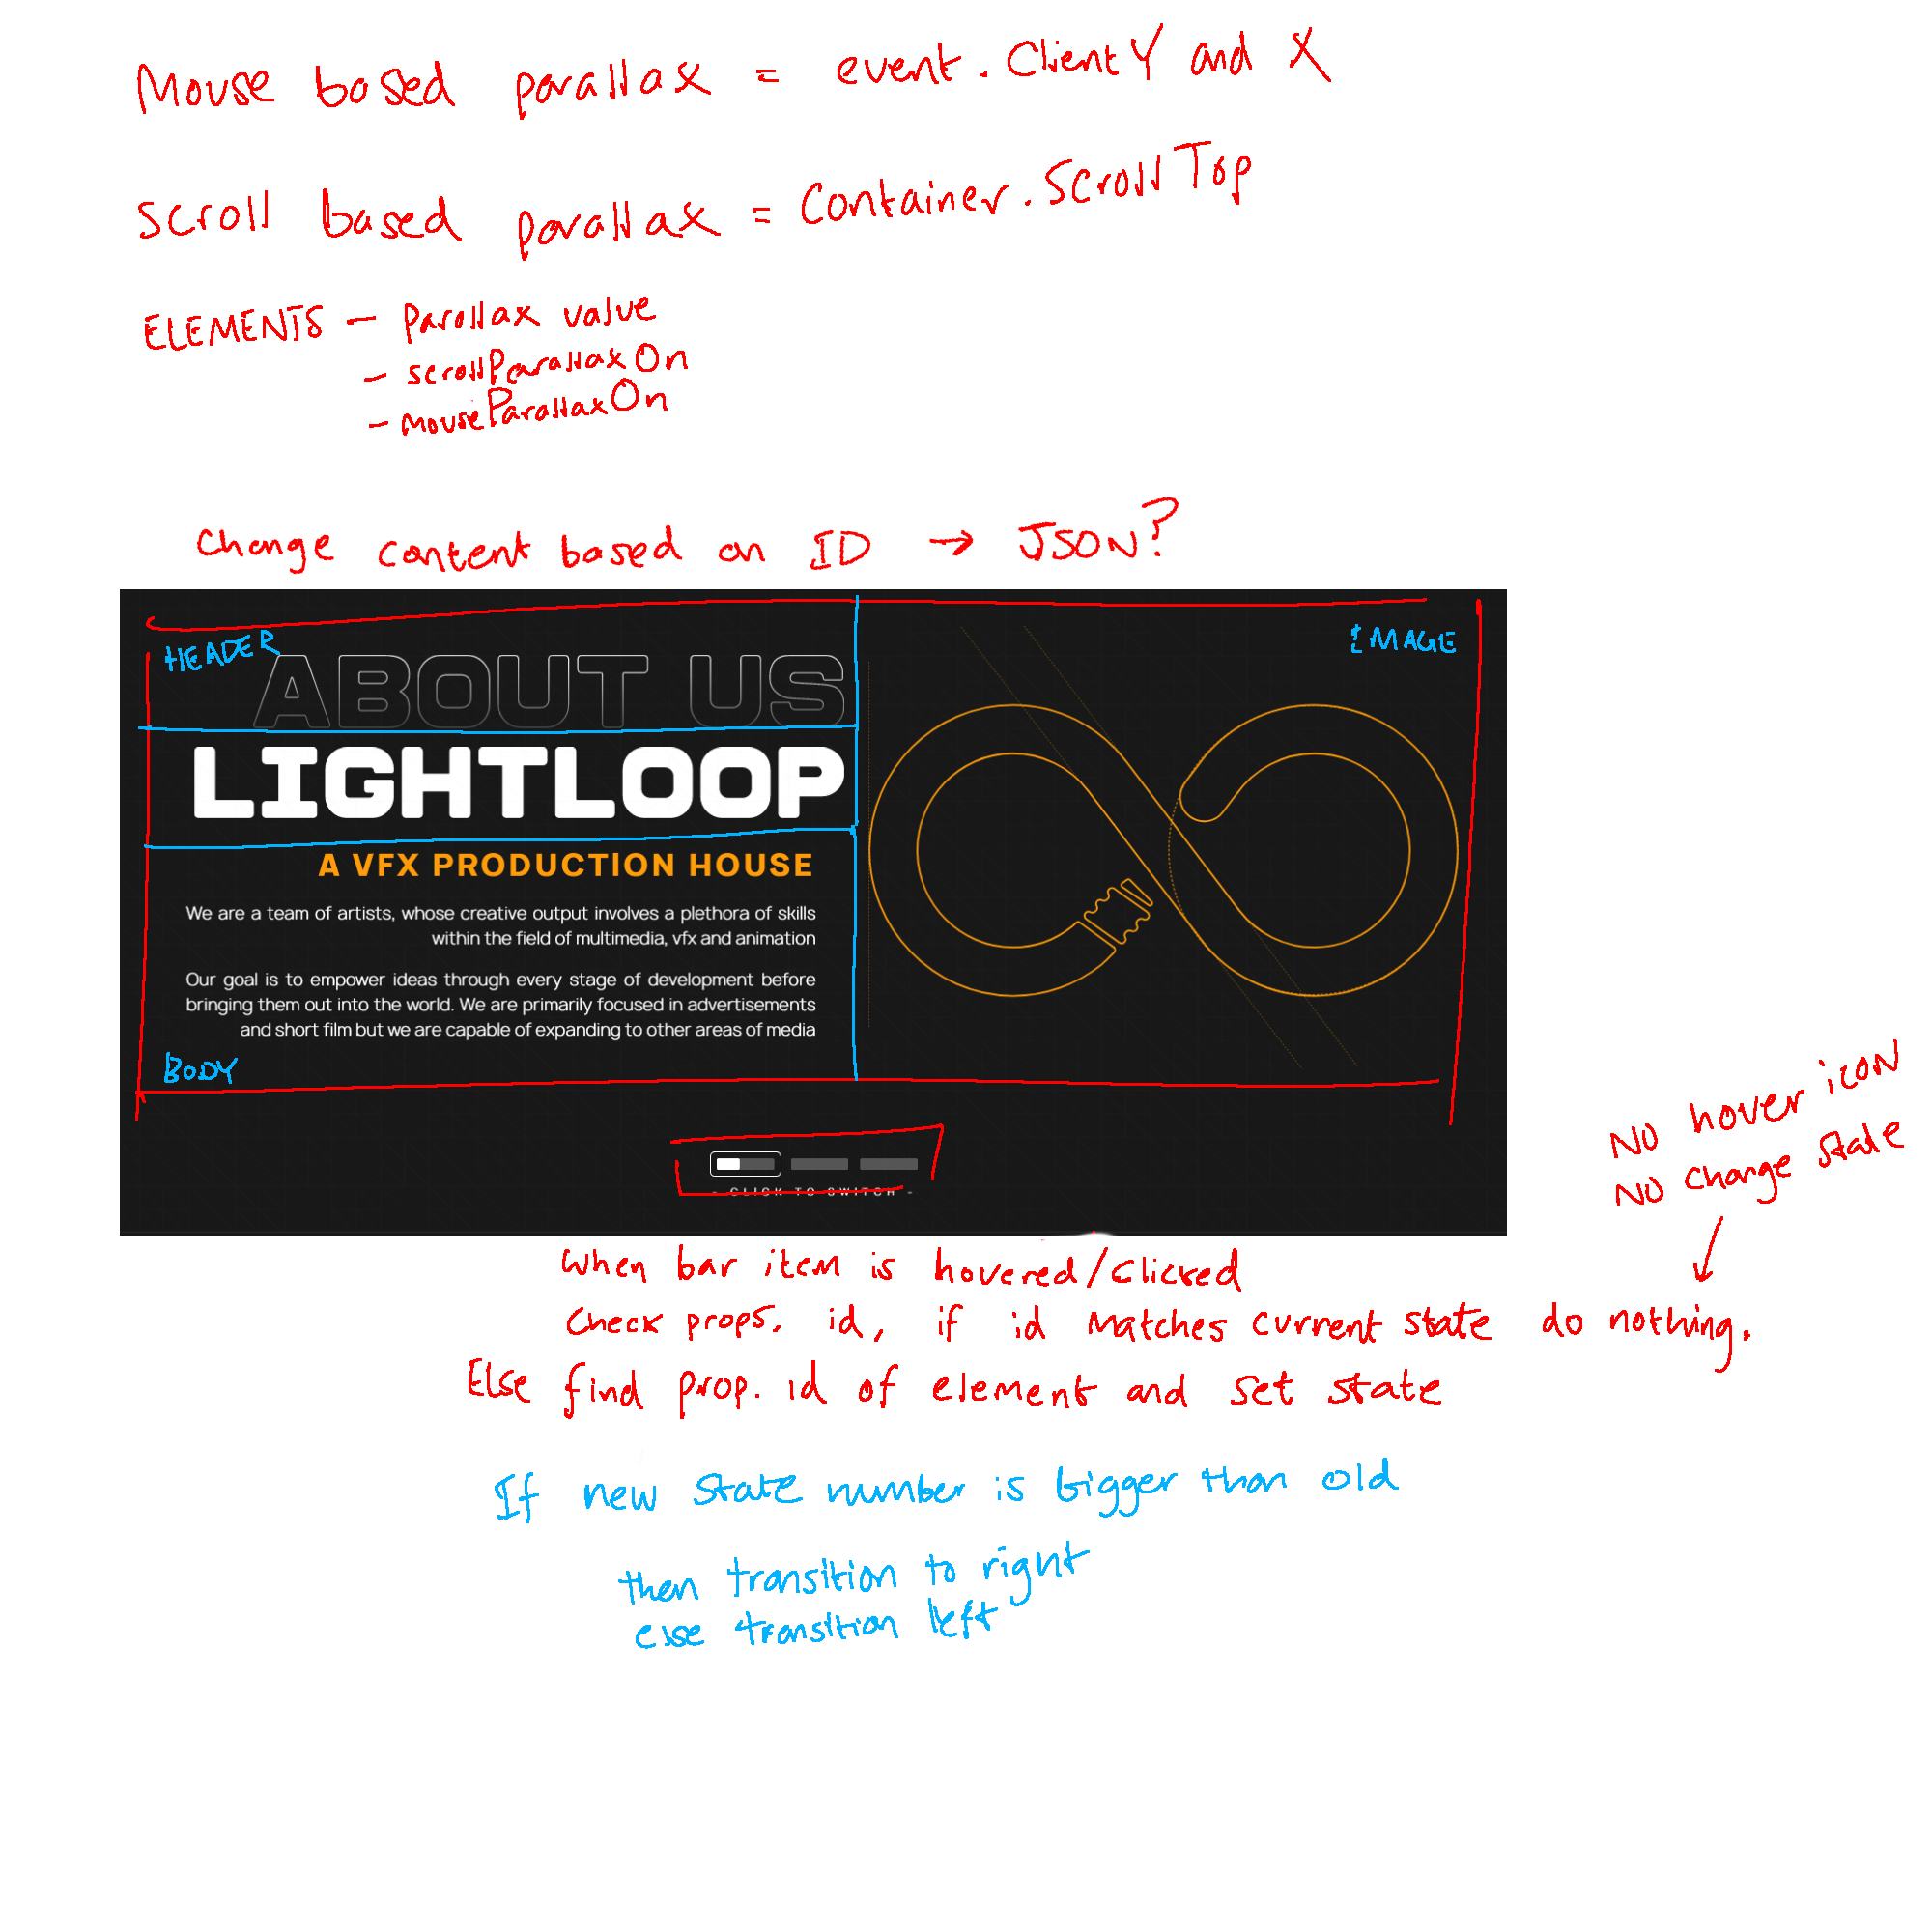 Mouse based parallax = event.ClientY and X
Scroll based parallax = Container.ScrollTop
ELEMENTS - Parallax value
- scrollParallaxOn
- mouseParallaxOn
Change content based on ID → JSON?
HEADER
IMAGE
ABOUT US
LIGHTLOOP
A VFX PRODUCTION HOUSE
We are a team of artists, whose creative output involves a plethora of skills
within the field of multimedia, vfx and animation
Our goal is to empower ideas through every stage of development before
bringing them out into the world. We are primarily focused in advertisements
and short film but we are capable of expanding to other areas of media
BODY
- CLICK TO SWITCH -
NO hover icon
NO change state
When bar item is hovered/clicked
Check props. id, if id matches current state do nothing.
Else find prop. id of element and set state
If new state number is bigger than old
then transition to right
else transition left